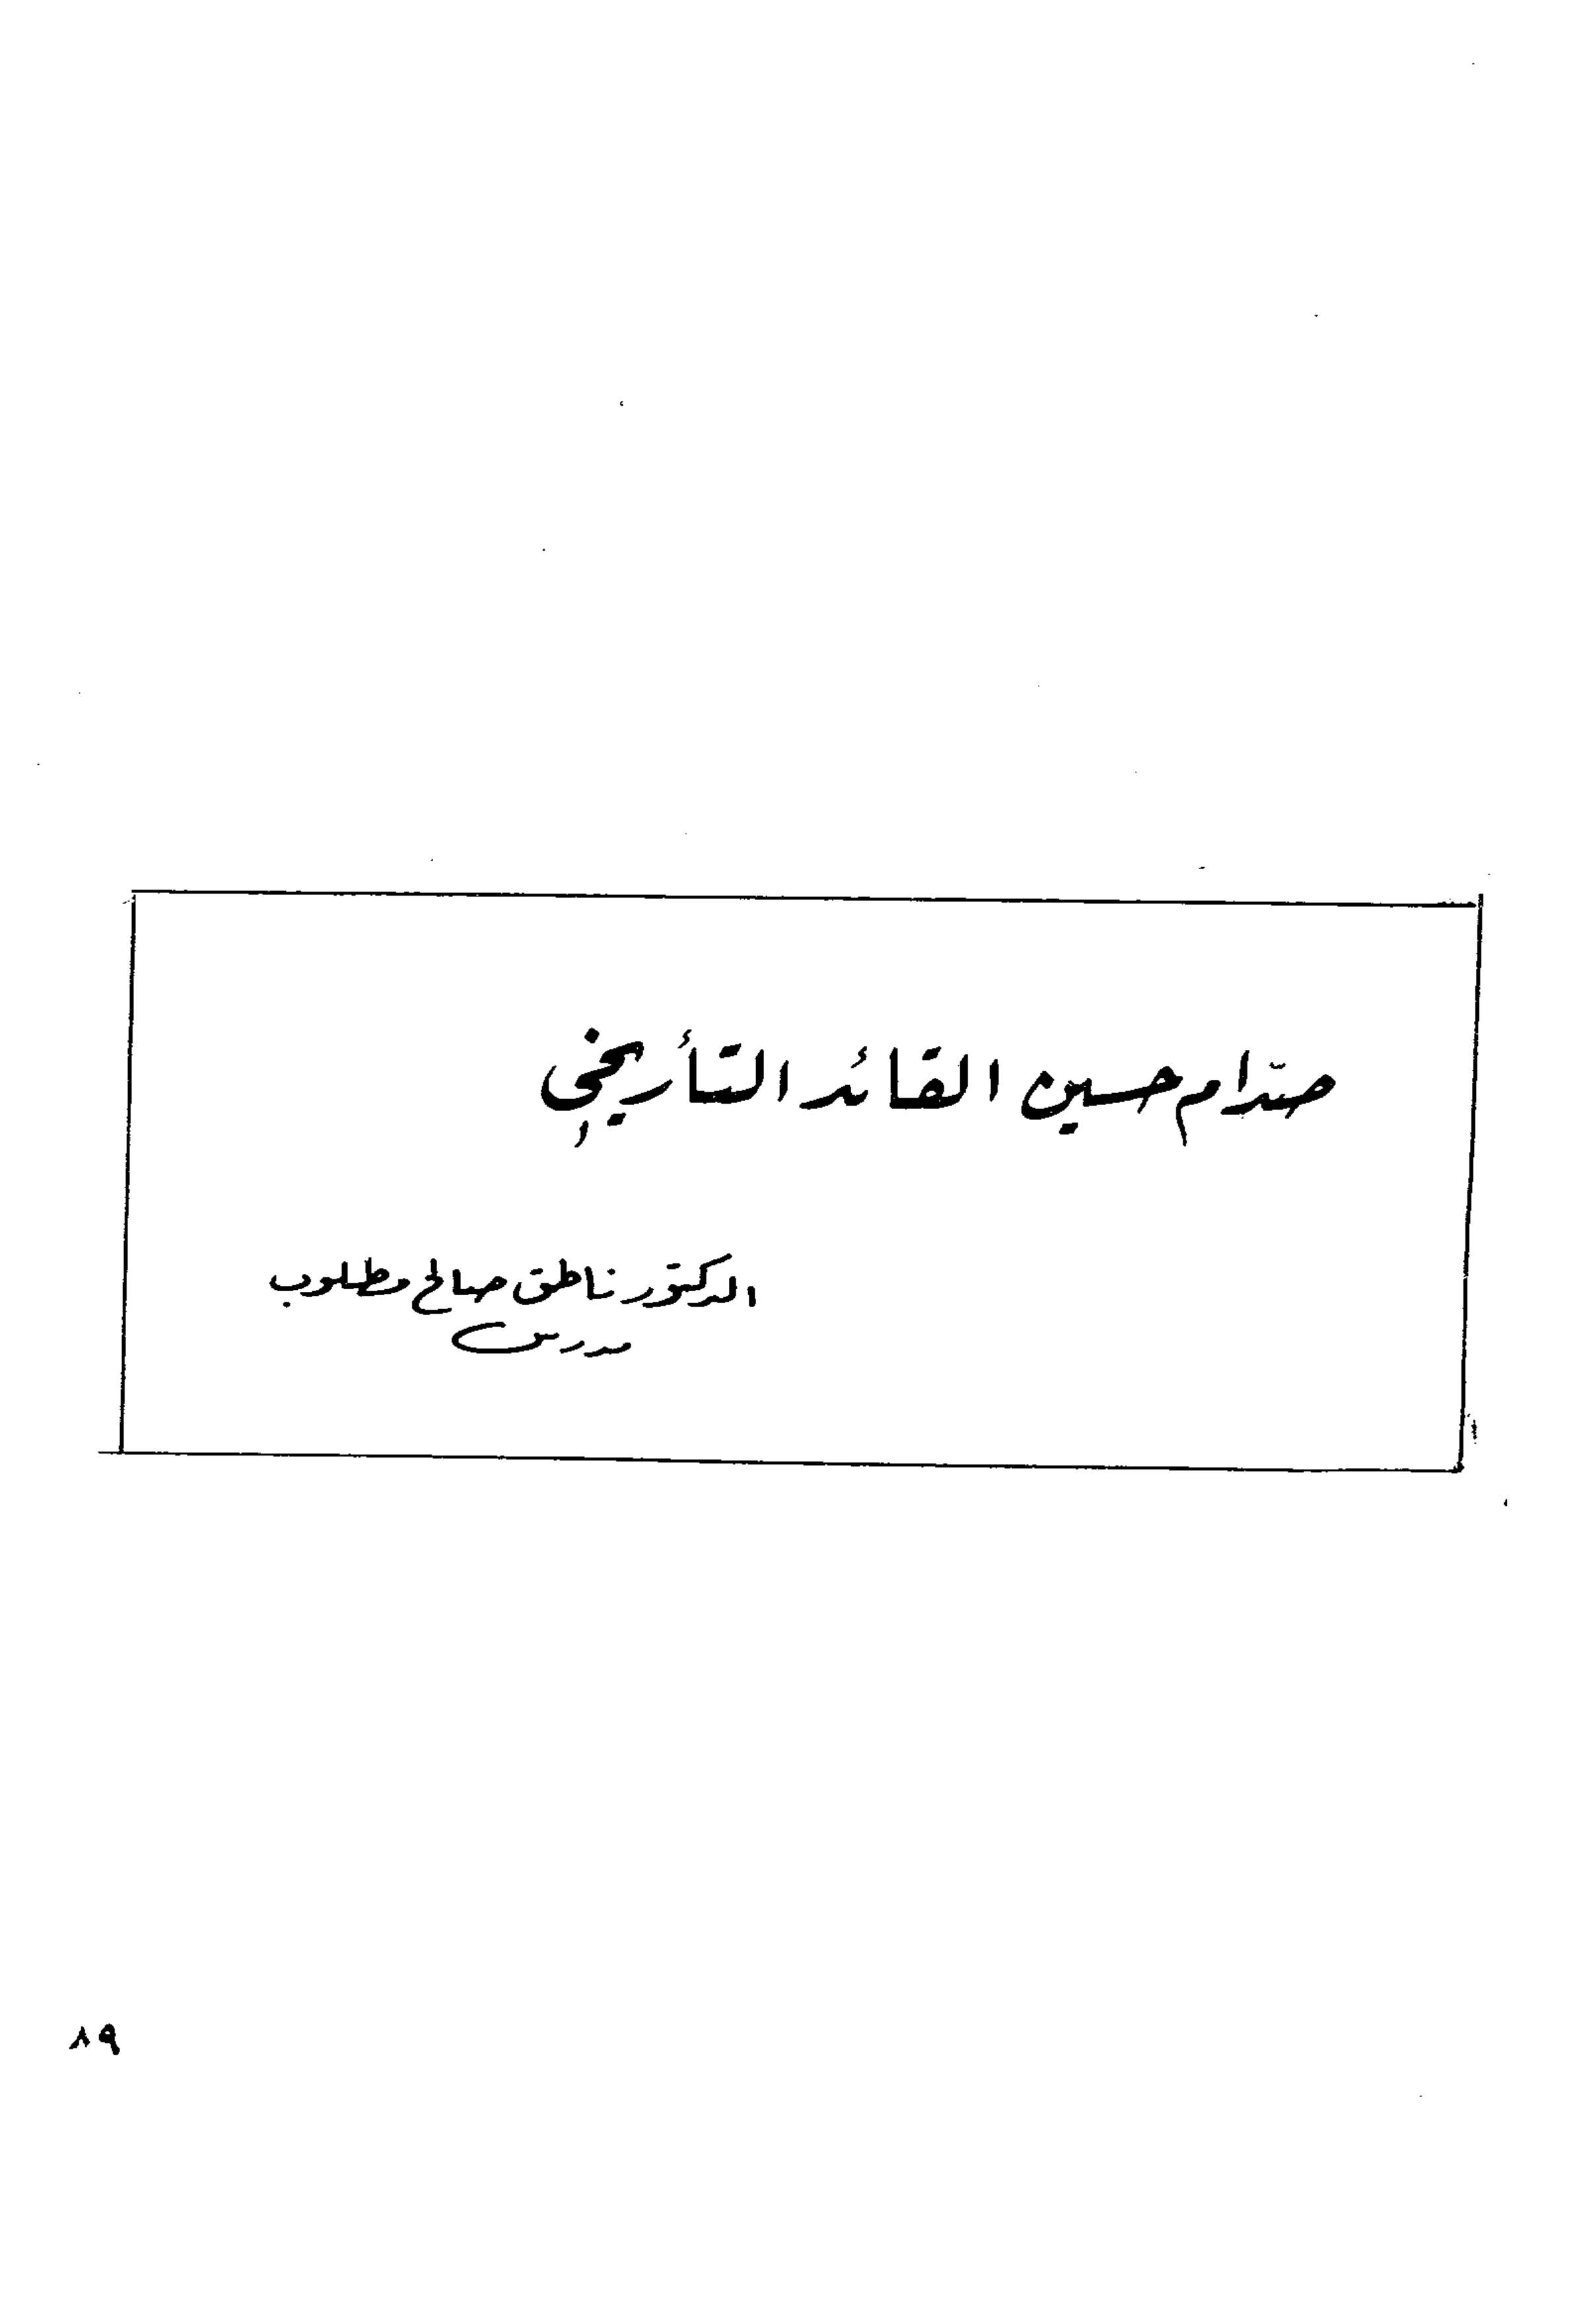 صدّام حسين القائد التأريخي
الدكتور ناطق صالح مطلوب
مدرس
٨٩